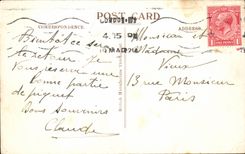 POST CARD
CORRESPONDENCE.
ADDRESS.
LONDON
4.15 PM
MAR
Bientôt ce sera
le retour. Je
Vous réserve une
bonne partie
de piquet
Bons Souvenirs
Claude
Monsieur et
Madame
Vieux
13 rue Monsieur
Paris